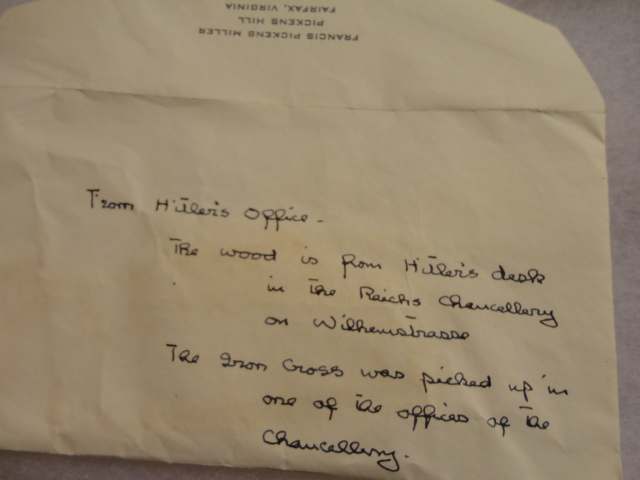 FRANCIS PICKENS MILLER
PICKENS HILL
FAIRFAX, VIRGINIA
From Hitler's Office -
The wood is from Hitler's desk
in the Reichs Chancellery
on Wilhemstrasse
The Iron Cross was picked up in
one of the offices of the
Chancellery.